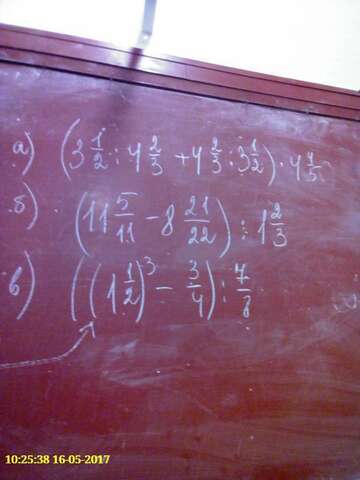 а) (3 1/2 : 4 2/3 + 4 2/3 : 3 1/2) · 4 4/5
б) (11 5/11 − 8 21/22) : 1 2/3
в) ((1 1/2)³ − 3/4) : 7/8
10:25:38 16-05-2017